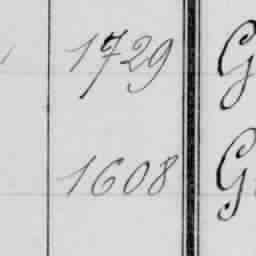 1729 G
1608 G